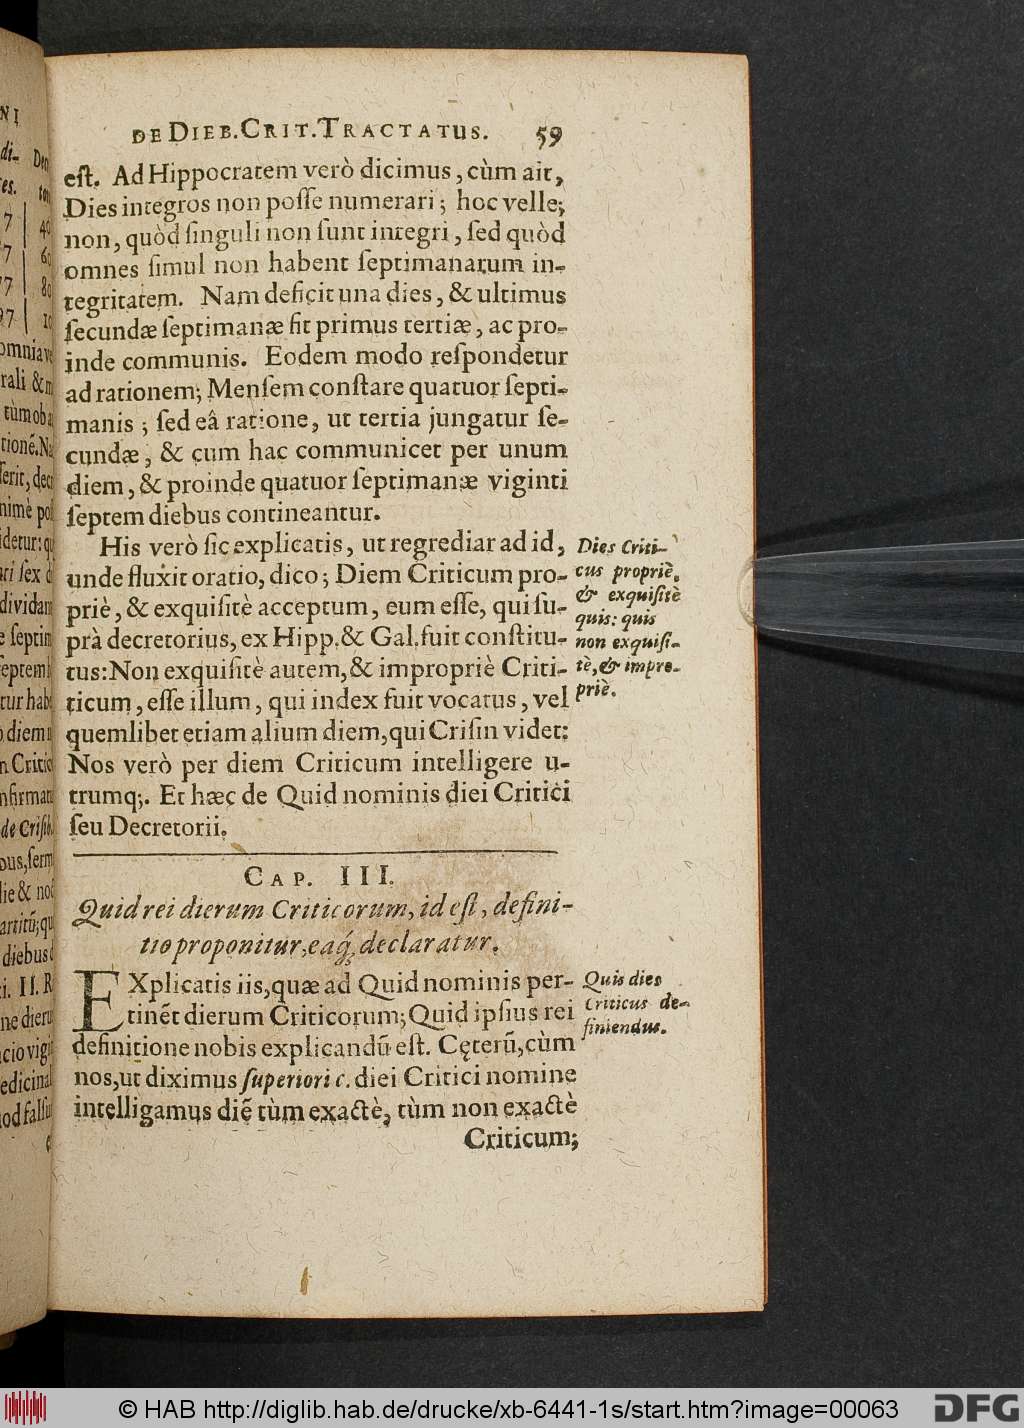 DE DIEB. CRIT. TRACTATUS. 59
eſt. Ad Hippocratem verò dicimus, cùm ait,
Dies integros non poſſe numerari; hoc velle;
non, quòd ſinguli non ſunt integri, ſed quòd
omnes ſimul non habent ſeptimanarum in-
tegritatem. Nam deficit una dies, & ultimus
ſecundæ ſeptimanæ fit primus tertiæ, ac pro-
inde communis. Eodem modo reſpondetur
ad rationem; Menſem conſtare quatuor ſepti-
manis; ſed eâ ratione, ut tertia jungatur ſe-
cundæ, & cum hac communicet per unum
diem, & proinde quatuor ſeptimanæ viginti
ſeptem diebus contineantur.
His verò ſic explicatis, ut regrediar ad id,
unde fluxit oratio, dico; Diem Criticum pro-
priè, & exquiſitè acceptum, eum eſſe, qui ſu-
prà decretorius, ex Hipp. & Gal. fuit conſtitu-
tus: Non exquiſitè autem, & impropriè Criti-
ticum, eſſe illum, qui index fuit vocatus, vel
quemlibet etiam alium diem, qui Criſin videt:
Nos verò per diem Criticum intelligere u-
trumq;. Et hæc de Quid nominis diei Critici
ſeu Decretorii.
Dies Criti-
cus propriè,
& exquiſitè
quis: quis
non exquiſi-
tè, & impro-
priè.
CAP. III.
Quid rei dierum Criticorum, id eſt, defini-
tio proponitur, eaq́; declaratur.
EXplicatis iis, quæ ad Quid nominis per-
tinẽt dierum Criticorum; Quid ipſius rei
definitione nobis explicandũ eſt. Cęterũ, cùm
nos, ut diximus ſuperiori c. diei Critici nomine
intelligamus diẽ tùm exactè, tùm non exactè
Criticum;
Quis dies
Criticus de-
finiendus.
© HAB http://diglib.hab.de/drucke/xb-6441-1s/start.htm?image=00063
DFG